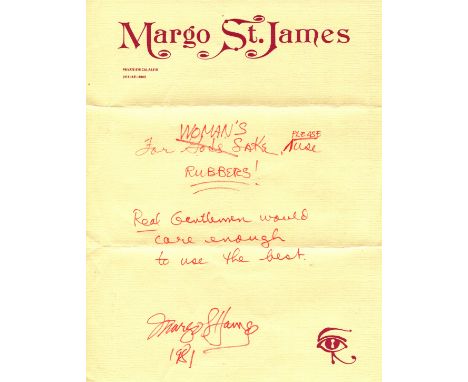 Margo St. James
WOMAN'S PLEASE
For Gods SAKE, use
RUBBERS!
Real Gentlemen would
care enough
to use the best.
Margo St James
1981